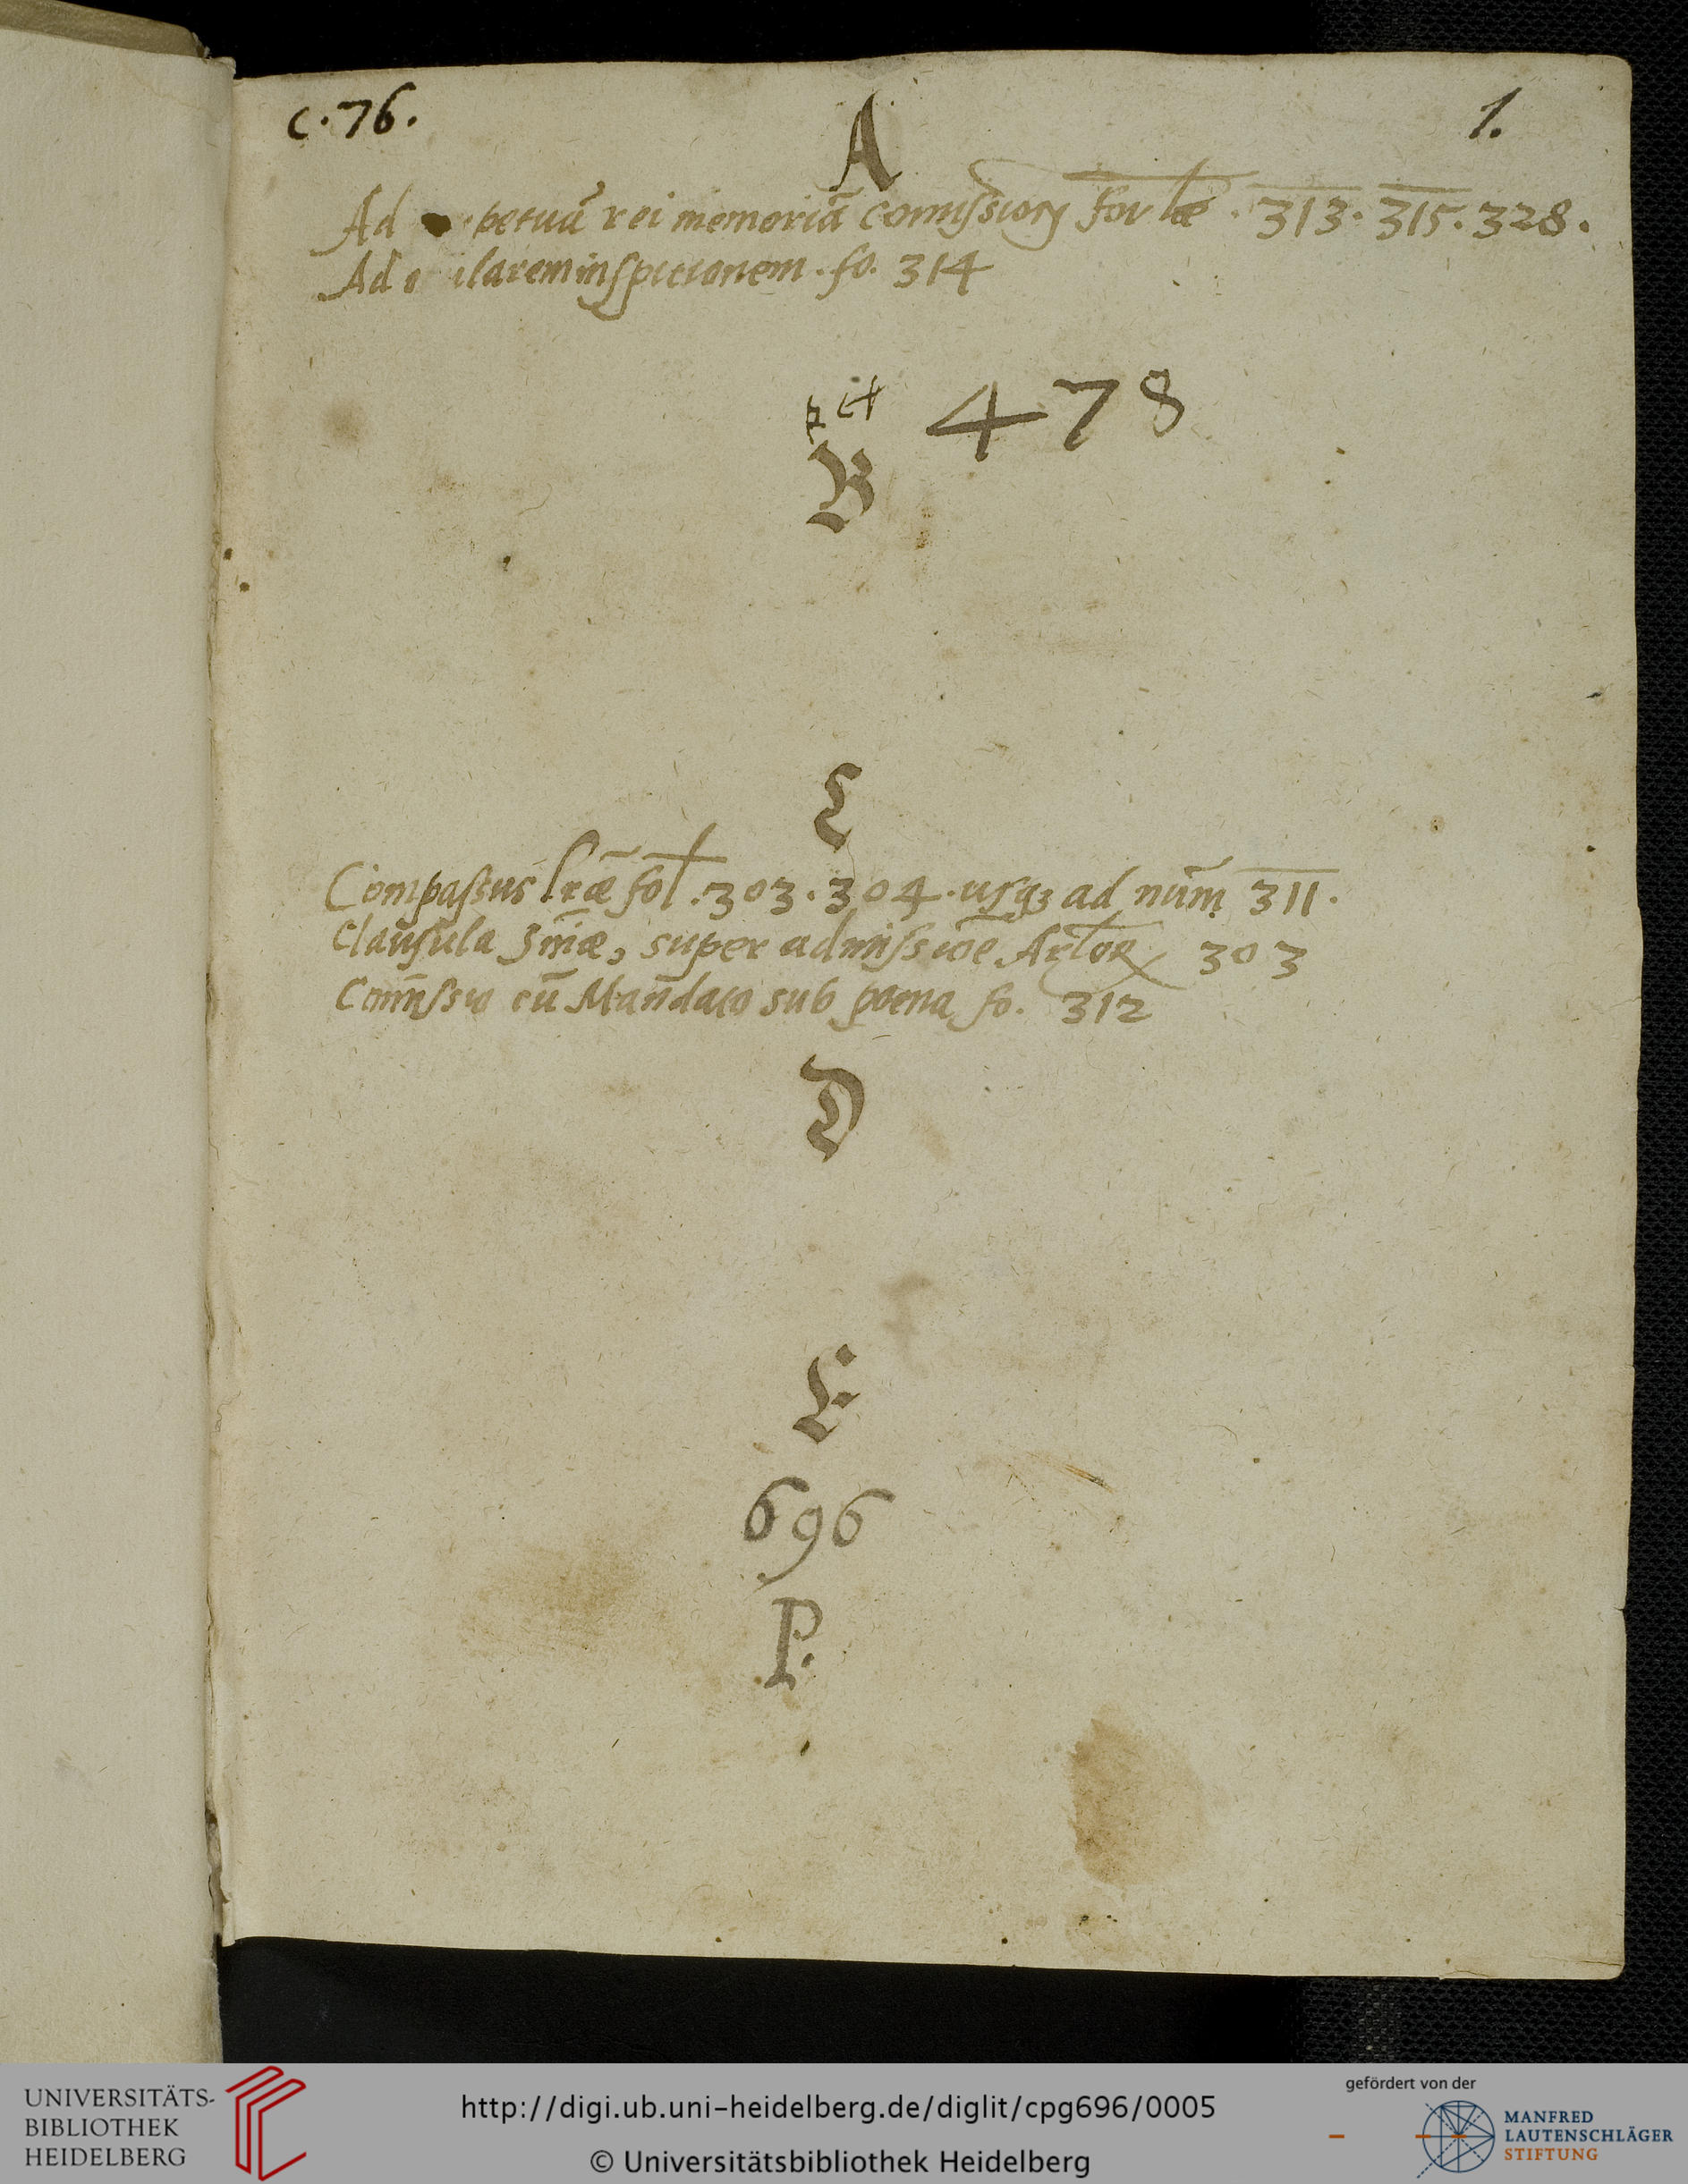 C. 76.
A
1.
Ad petuū rei memoriā 313. 315. 328.
Ad fo. 314
478
B
C
Compassus lr̄æ fol. 303. 304. usq3 ad num̄ 311.
Clausula super admissiōe 303
cū Mandato sub poena fo. 312
D
E
696
P.
UNIVERSITÄTS-
BIBLIOTHEK
HEIDELBERG
http://digi.ub.uni-heidelberg.de/diglit/cpg696/0005
© Universitätsbibliothek Heidelberg
gefördert von der
MANFRED
LAUTENSCHLÄGER
STIFTUNG